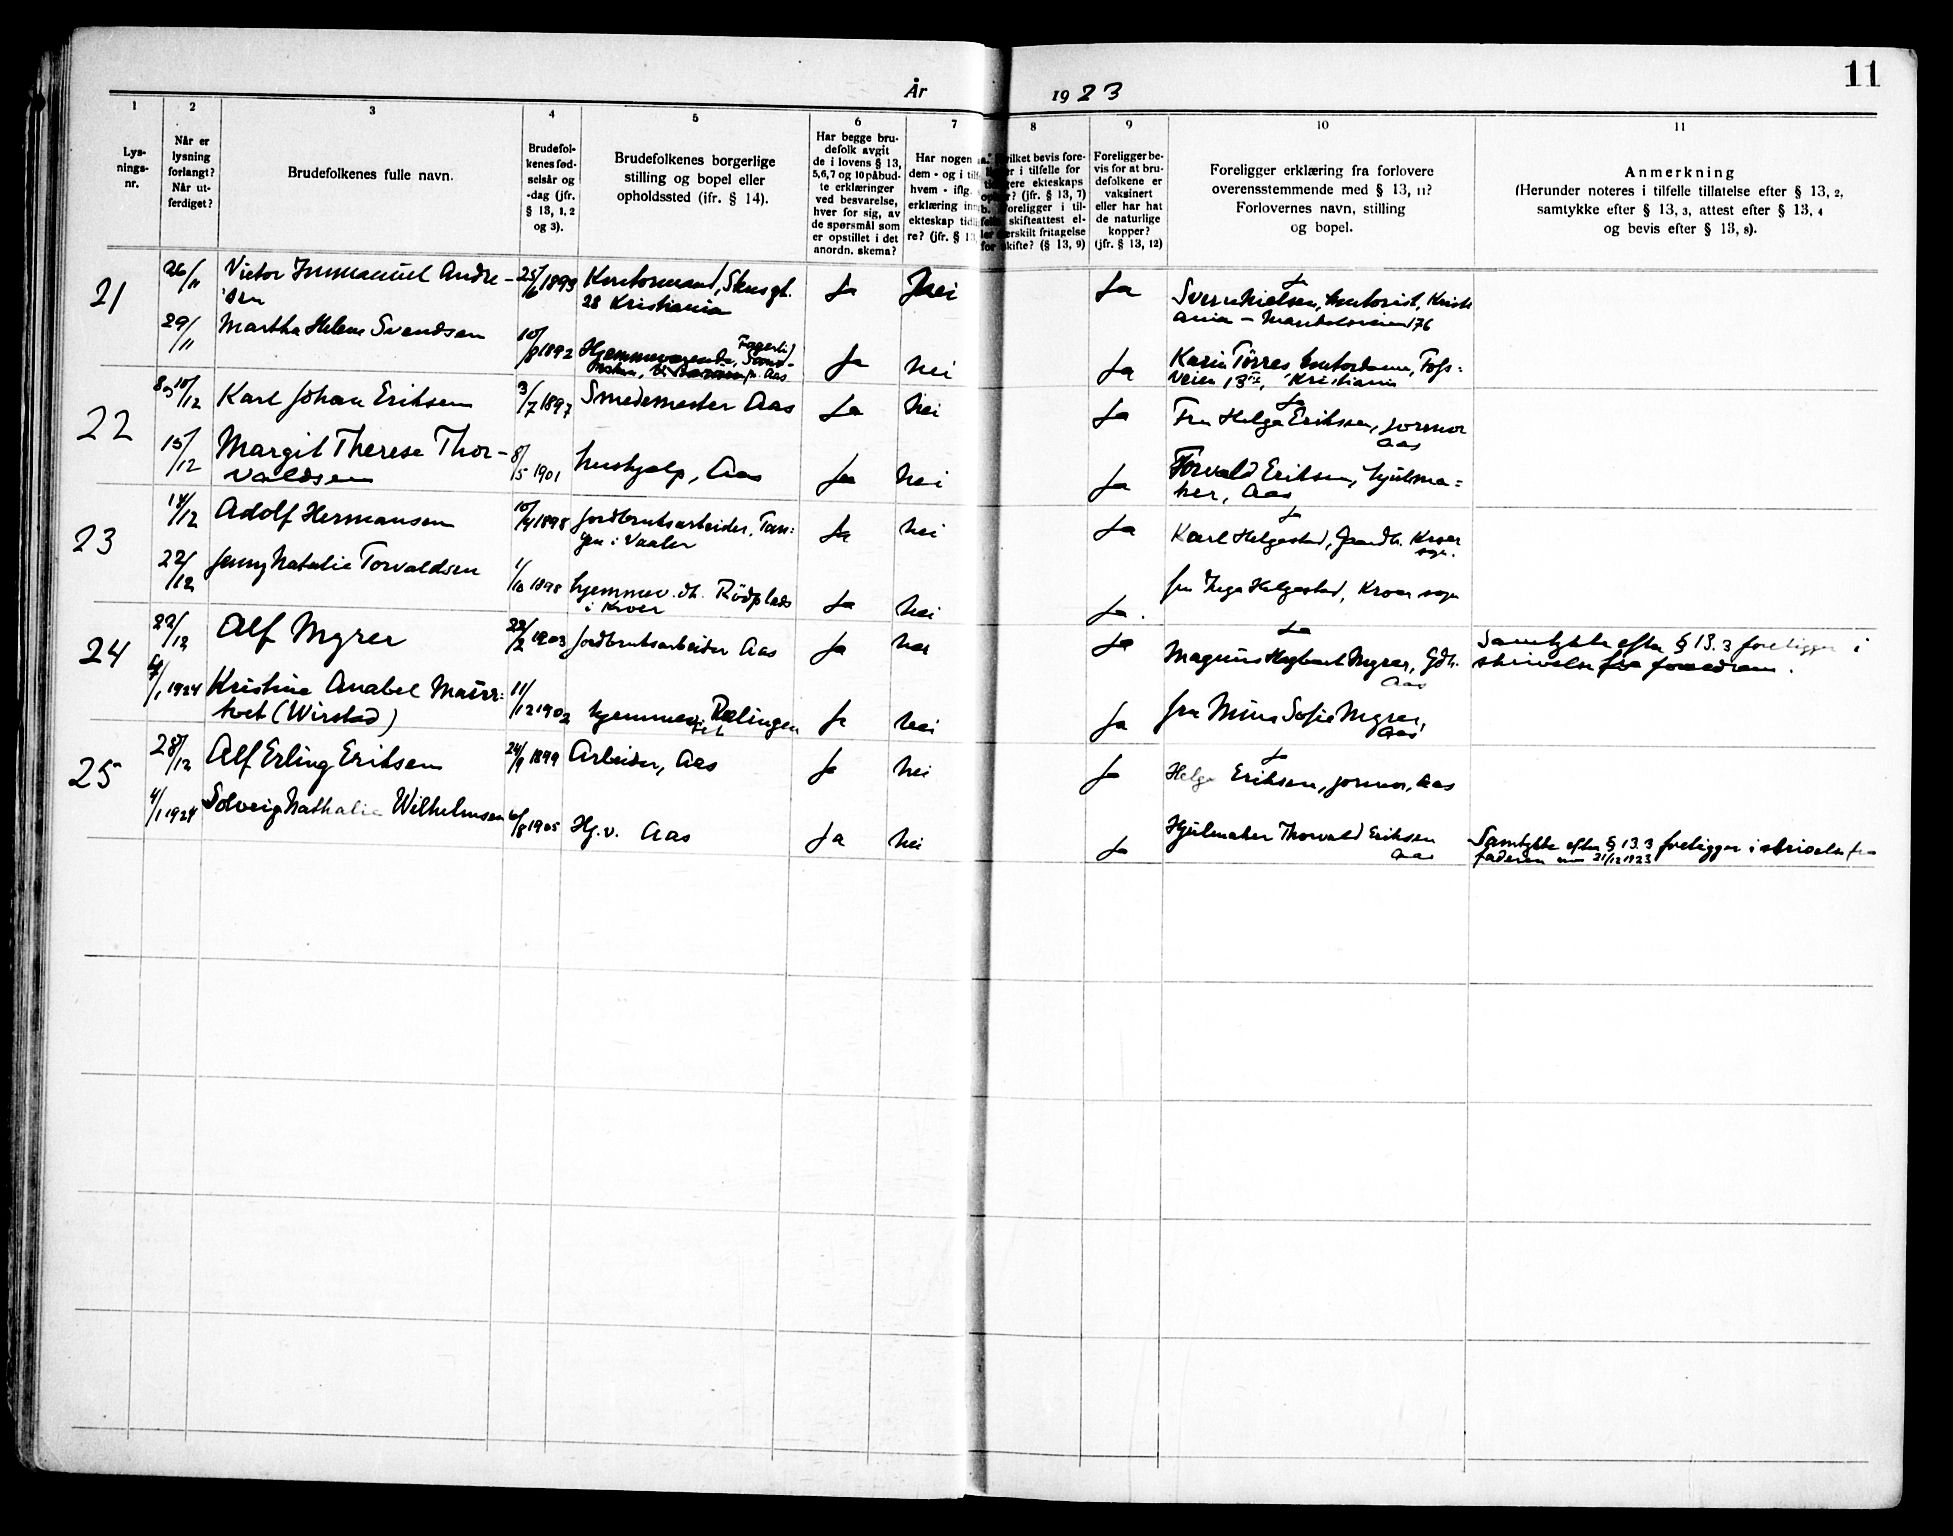 11
År 1923
1 2 3 4 5 6 7 8 9 10 11
Lys-
nings-
nr.
Når er
lysning
forlangt?
Når ut-
ferdiget?
Brudefolkenes fulle navn.
Brudefol-
kenes fød-
selsår og
-dag (jfr.
§ 13, 1, 2
og 3).
Brudefolkenes borgerlige
stilling og bopel eller
opholdssted (ifr. § 14).
Har begge bru-
defolk avgit
de i lovens § 13,
5,6,7 og 10 påbud-
te erklæringer
ved besvarelse,
hver for sig, av
de spørsmål som
er opstillet i det
anordn. skema?
Har nogen
dem - og i til
hvem - iflg.
erklæring in
ekteskap tid
re? (jfr. § 13
ilket bevis fore-
er i tilfelle for
ere ekteskaps
? (jfr. § 13, 7)
oreligger i til-
skifteattest el-
ler særskilt fritagelse
for skifte? (§ 13, 9)
Foreligger be-
vis for at bru-
defolkene er
vaksinert
eller har hat
de naturlige
kopper?
(jfr. § 13, 12)
Foreligger erklæring fra forlovere
overensstemmende med § 13, 11?
Forlovernes navn, stilling
og bopel.
Anmerkning
(Herunder noteres i tilfelle tillatelse efter § 13, 2,
samtykke efter § 13, 3, attest efter § 13, 4
og bevis efter § 13, 8).
21
26/11 Victor Immanuel Andre-
sen
25/6 1899 Kontormand,
28 Kristiania
Ja Nei Ja
Ja
Svern Nielsen, kontorist, Kristi
ania - 176
29/11 Martha Helene Svendsen
10/8 1892 Hjemmeværende, Aas
Ja nei Ja
Karin Törres kontordame,
veien 13, Kristiania
22
10/12 Karl Johan Eriksen
3/7 1897 Smedemester Aas
Ja Nei Ja
Ja
Fru Helga Eriksen, jormor
Aas
15/12 Margit Therese Thor-
valdsen
8/5 1901 hushjælp, Aas
Ja Nei Ja
Torvald Eriksen, hjulma=
ker, Aas
23
14/12 Adolf Hermansen
10/4 1898 Jordbruksarbeider, Tan=
gen i Vaaler
Ja nei Ja
Ja
Karl Helgestad, Gaardbr. Kroer
sogn.
22/12 Jenny Natalie Torvaldsen
1/10 1898 hjemmev. dtr. Rödplads
i Kroer
Ja Nei Ja.
fru Inga Helgestad, Kroer sogn
24
22/12 Alf Myrer
22/2 1903 Jordbruksarbeider Aas
Ja nei Ja
Ja
Magnus Myrer, Gdbr.
Aas
Samtykke efter § 13. 3 foreligger i
skrivelse fra forældrene.
4/1 1924 Kristine Anabel
(Wirstad)
11/12 1902 hjemmev. Rælingen
Ja Nei Ja
fru Mina Sofie Myrer,
Aas
25
28/12 Alf Erling Eriksen
24/9 1899 Arbeider, Aas
Ja Nei Ja
Ja
Helga Eriksen, jormor, Aas
4/1 1924 Solveig Nathalie Wilhelmsen
6/8 1905 Hj.v. Aas
Ja Nei Ja
Hjulmaker Thorvald Eriksen
Aas
Samtykke efter § 13.3 foreligger i skrivelse fra
faderen 21/12 1923